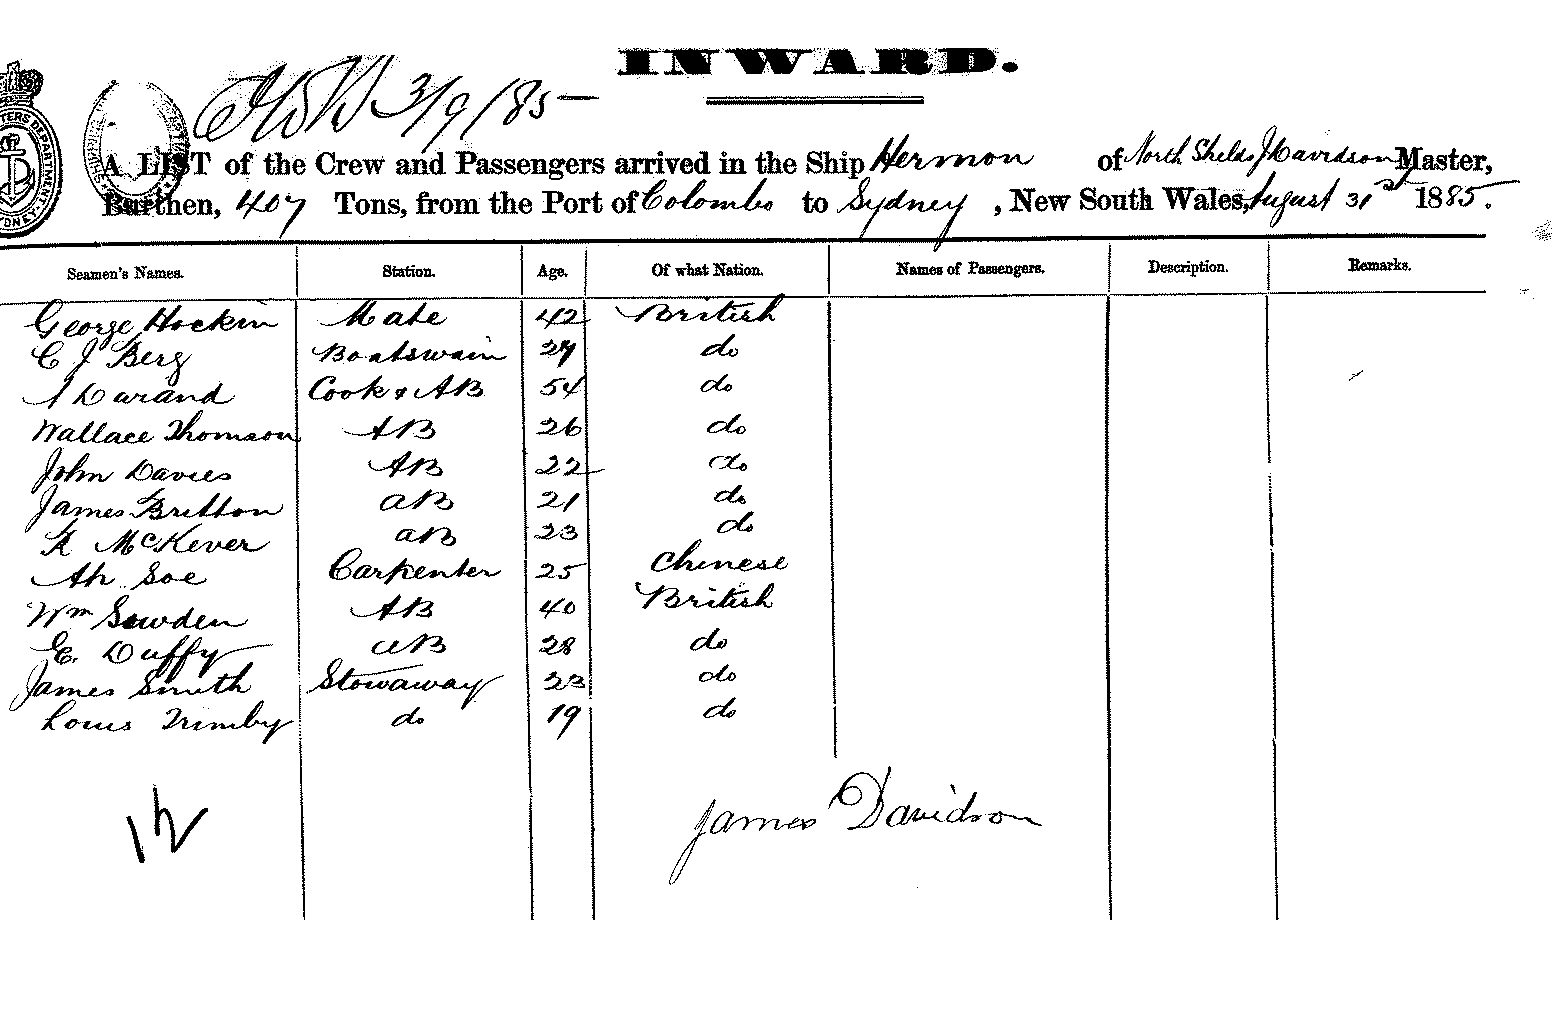 INWARD.
3/9/85 —
A LIST of the Crew and Passengers arrived in the Ship Hermon of North Shelds J Davidson Master,
Burthen, 407 Tons, from the Port of Colombo to Sydney, New South Wales, August 31st 1885.
Seamen's Names. Station. Age. Of what Nation. Names of Passengers. Description. Remarks.
George Hockin Mate 42 British
C J Berg Boatswain 27 do
Durand Cook & AB 54 do
Wallace Thomson AB 26 do
John Davies AB 22 do
James Britton aB 21 do
McKever aB 23 do
Ah Soe Carpenter 25 Chinese
Wm Sowden AB 40 British
E. Duffy aB 28 do
James Smith Stowaway 23 do
Louis Trimby do 19 do
12
James Davidson